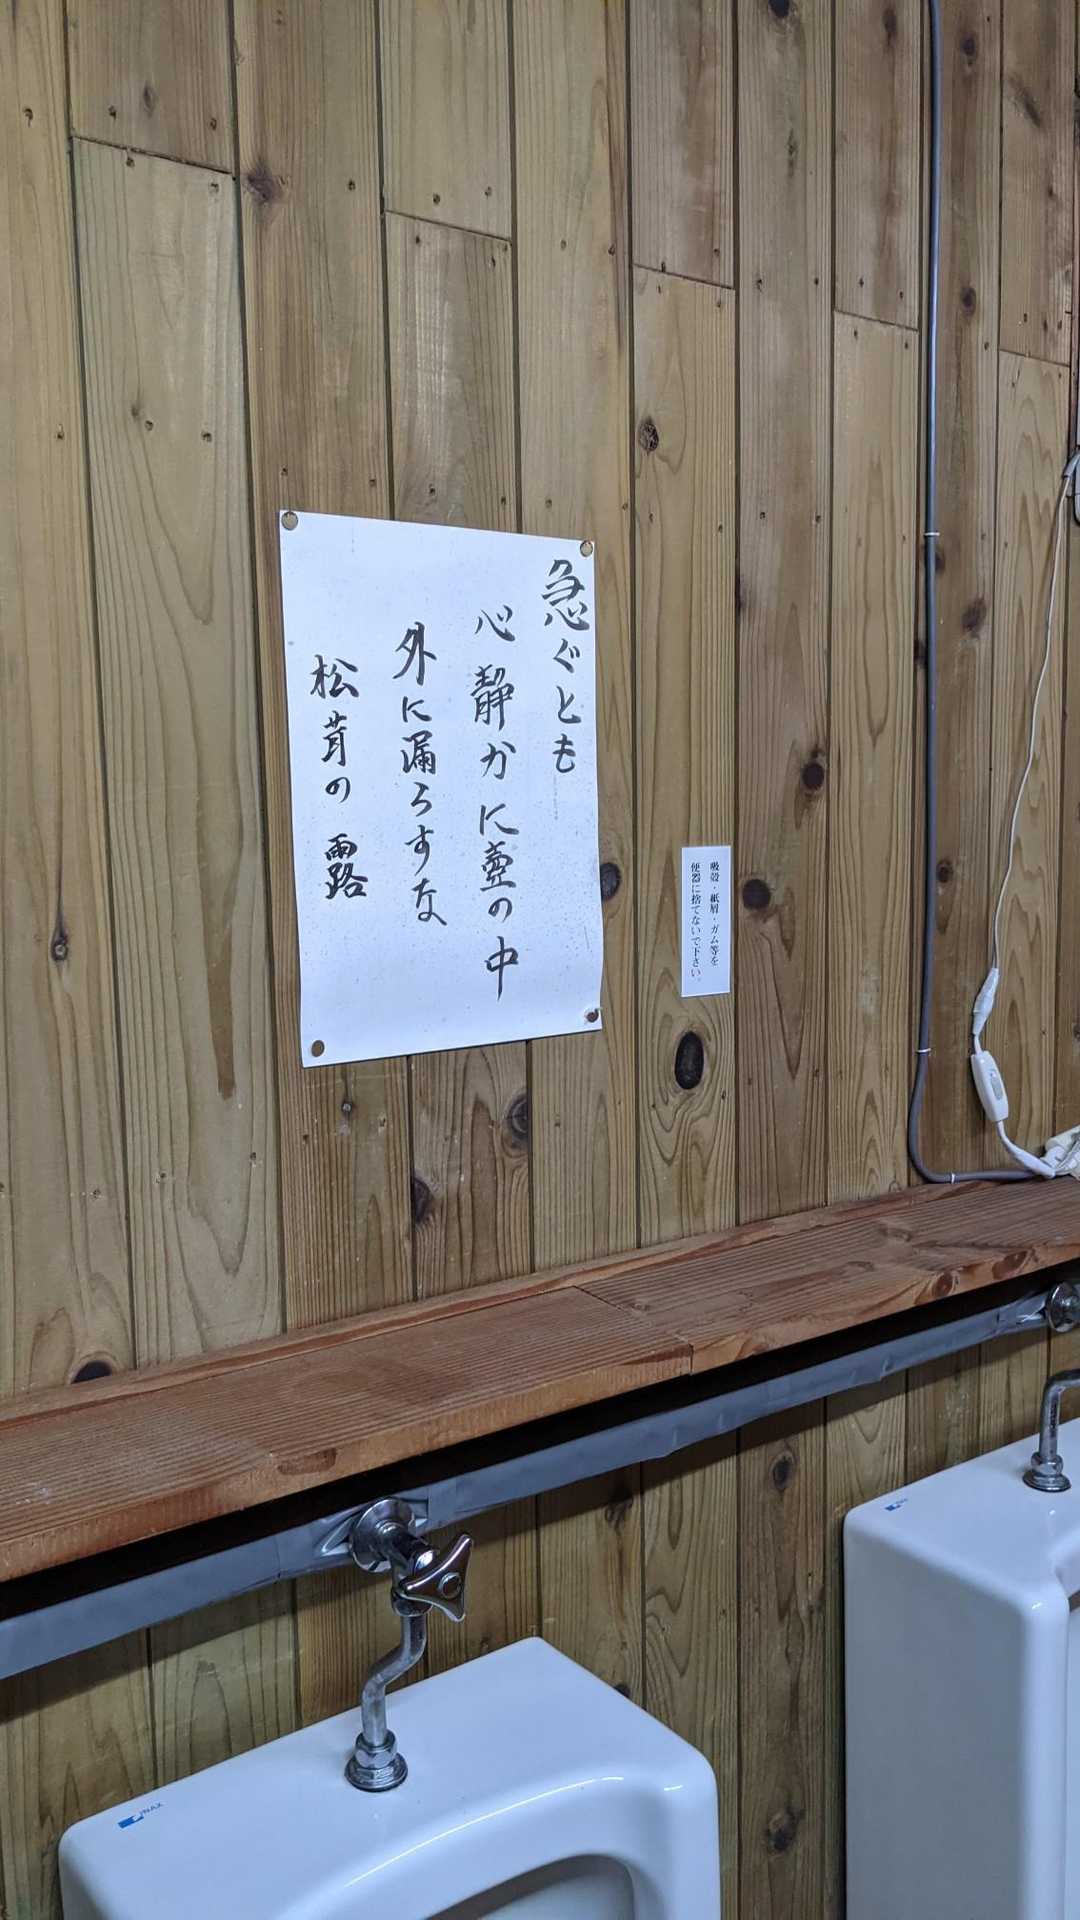 急ぐとも
心静かに壺の中
外に漏らすな
松茸の露
吸殻・紙屑・ガム等を
便器に捨てないで下さい。
INAX